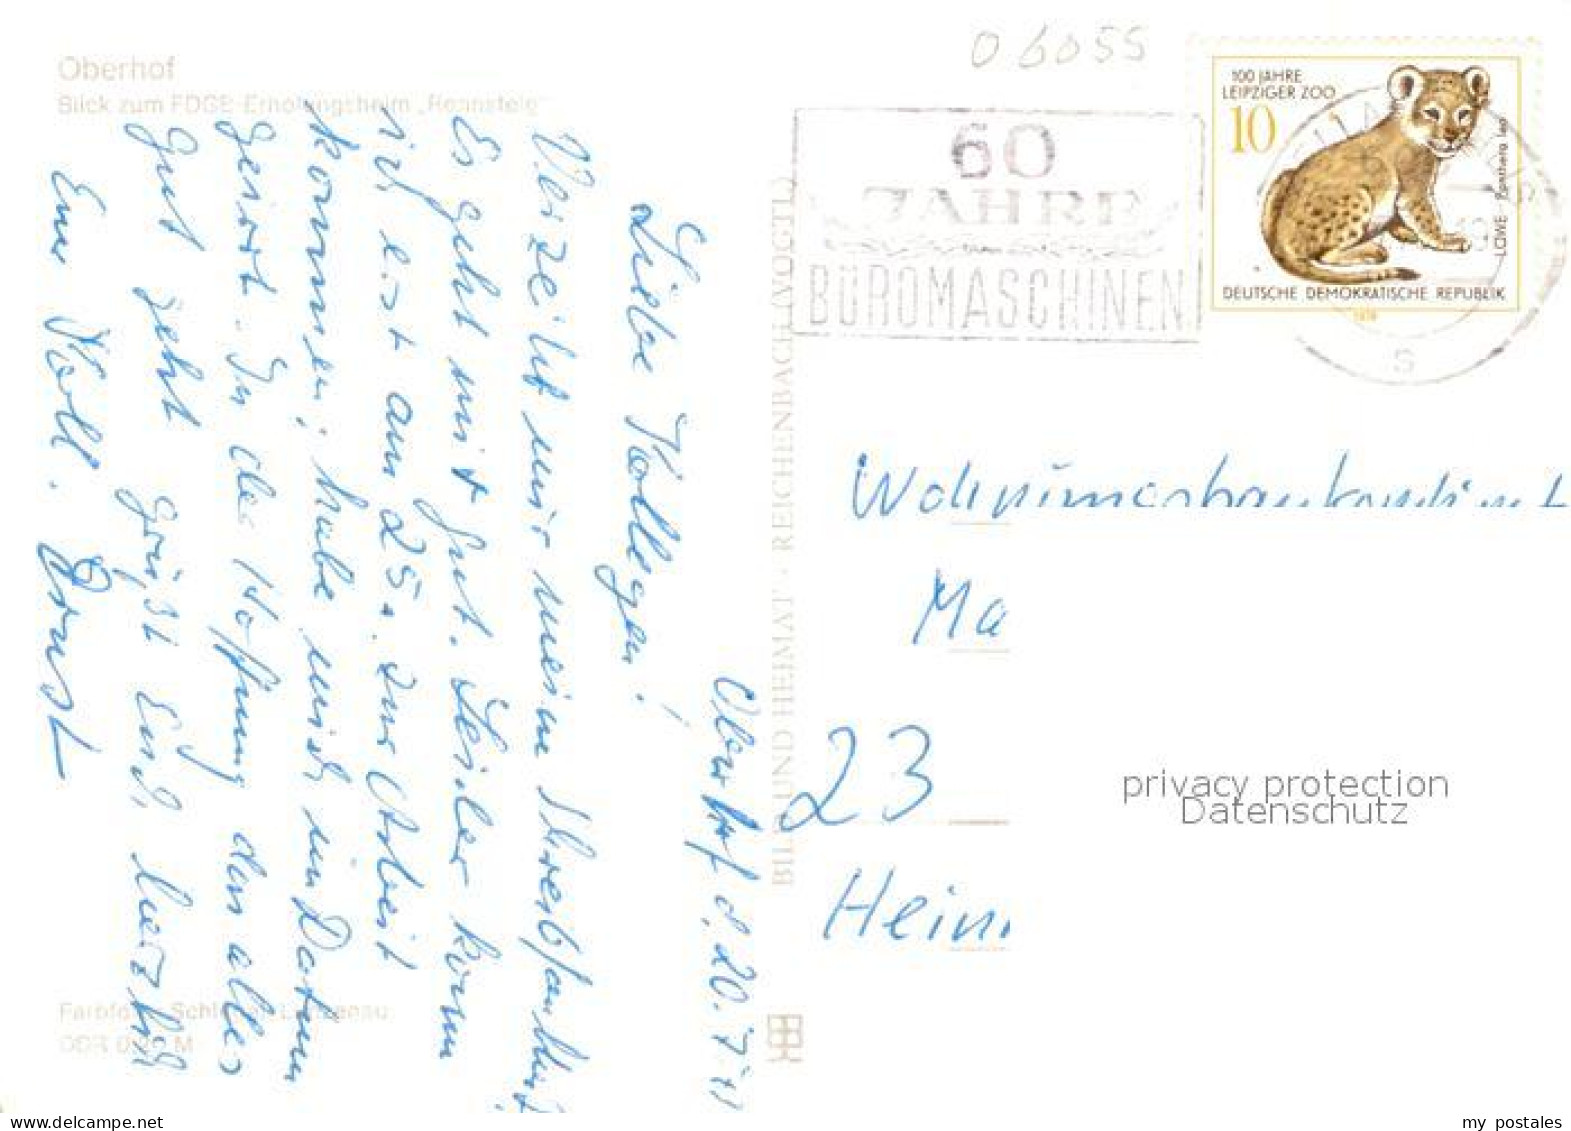 Oberhof
Blick zum FDGB-Erholungsheim „Rennsteig"
06055
60
JAHRE
BÜROMASCHINEN
100 JAHRE
LEIPZIGER ZOO
10
LÖWE · Panthera leo
DEUTSCHE DEMOKRATISCHE REPUBLIK
1978
S
BILD UND HEIMAT · REICHENBACH (VOGTL)
Oberhof d. 20.7.
Liebe Kollegen!
Verzeiht mir meine
Es geht mir gut. Leider kann
ich erst am 25. zur Arbeit
kommen; habe mich im Datum
geirrt. In der Hoffnung daß alles
gut geht grüßt Euch herzlich
Euer Koll. Ernst
Ma
23
Hein
privacy protection
Datenschutz
DDR M
my postales